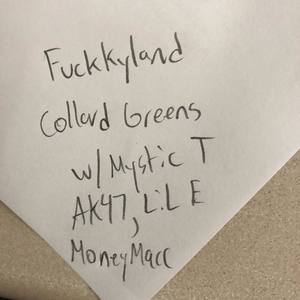 Fuckkyland
Collard Greens
w/ Mystic T
AK47, LiL E
MoneyMacc